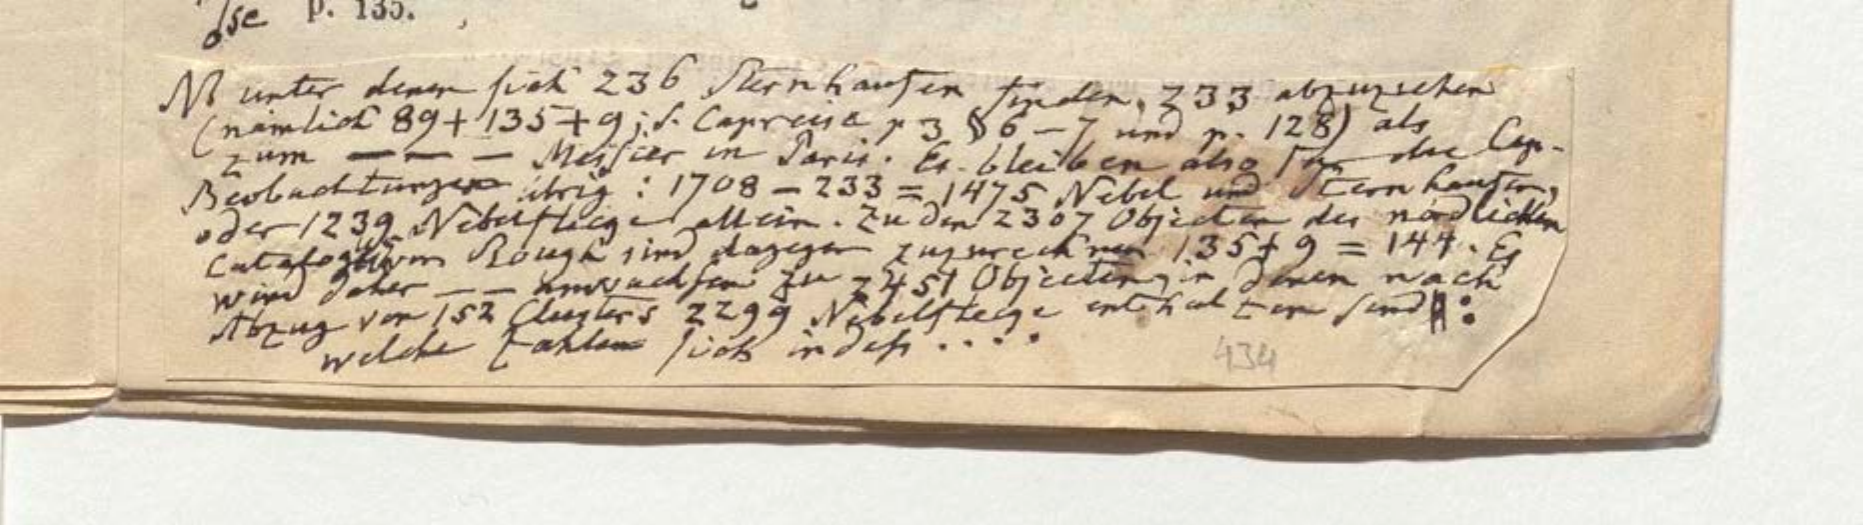 dse p. 135.
NB unter denen sich 236 Sternhaufen finden, 233 abzuziehen
(nämlich 89 + 135 + 9; s. Capreise p 3 § 6 – 7 und p. 128) als
zum — — — Messier in Paris. Es bleiben also für die Cap-
Beobachtungen übrig: 1708 – 233 = 1475 Nebel und Sternhaufen,
oder 1239 Nebelflecke allein. Zu den 2307 Objecten des nördlichen
Catalogs von Slough sind dagegen zuzurechnen 135 + 9 = 144. Es
wird daher — — anwachsen zu 2451 Objecten, in denen nach
Abzug von 152 Clusters 2299 Nebelflecke enthalten sind:
welche Zahlen sich indess . . . .
434